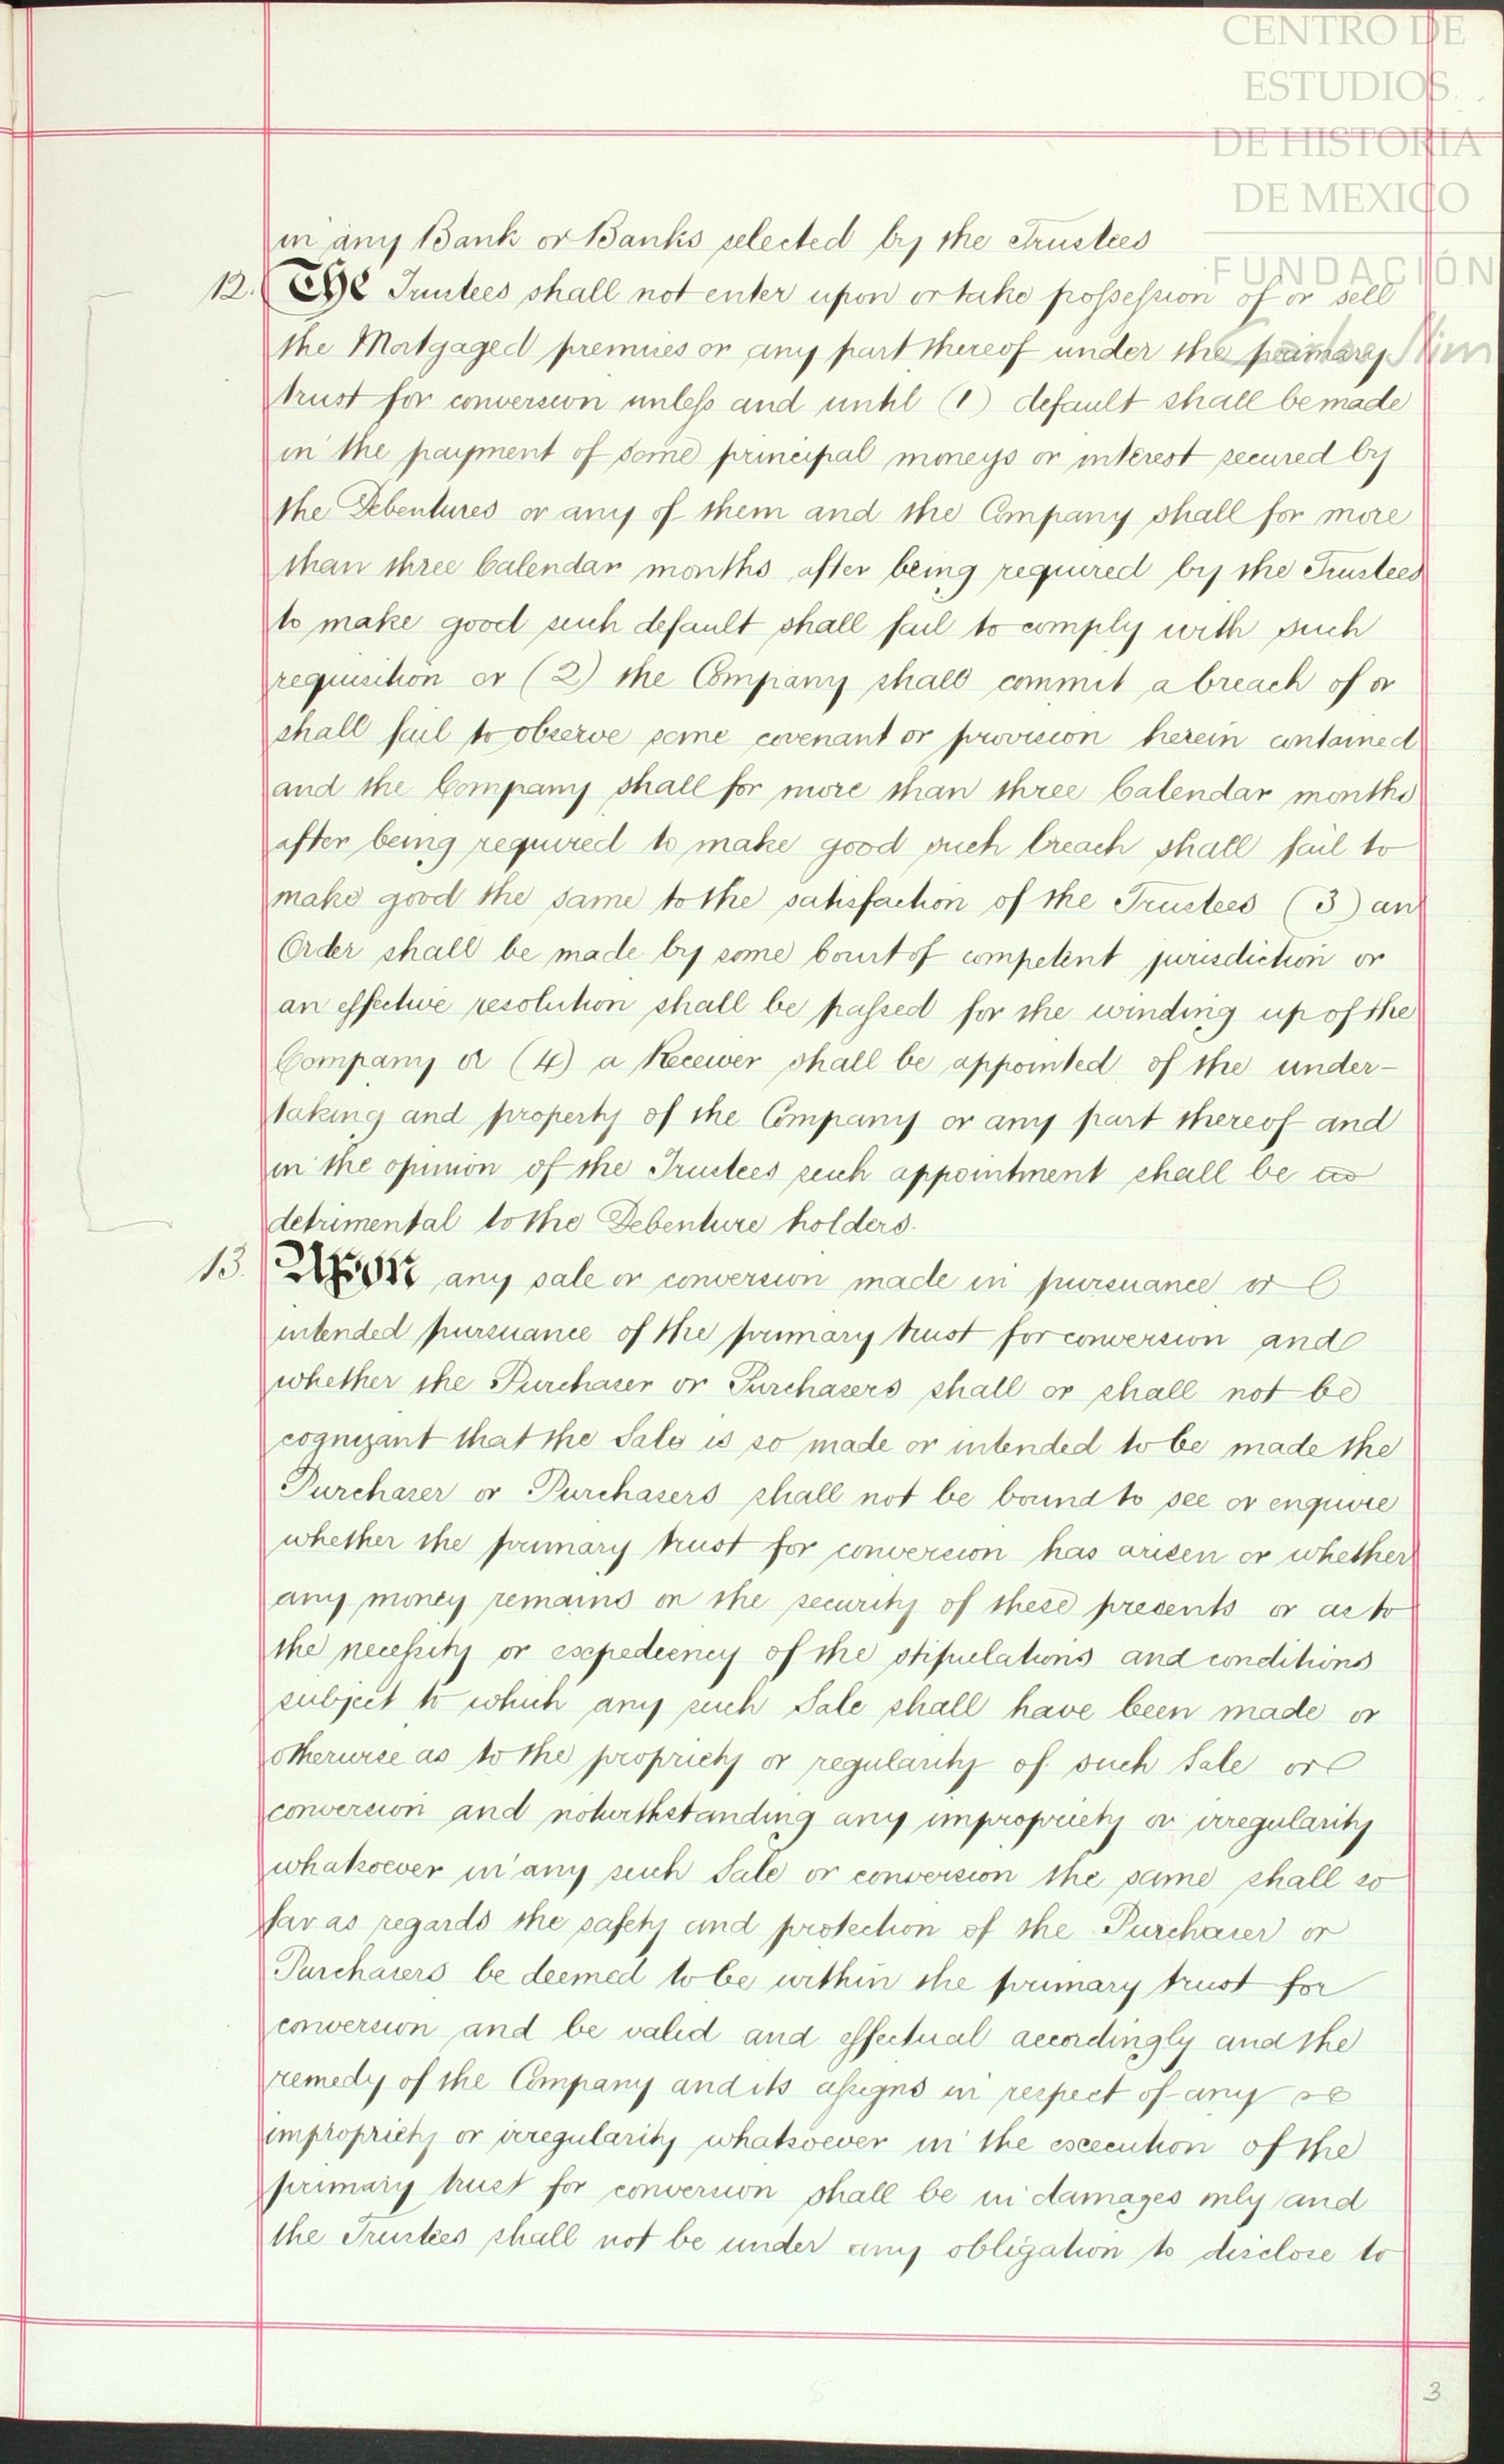 CENTRO DE
ESTUDIOS
DE HISTORIA
DE MEXICO
FUNDACIÓN
Carlos Slim
in any Bank or Banks selected by the Trustees
12. The Trustees shall not enter upon or take possession of or sell
the Mortgaged premises or any part thereof under the primary
trust for conversion unless and until (1) default shall be made
in the payment of some principal moneys or interest secured by
the Debentures or any of them and the Company shall for more
than three Calendar months after being required by the Trustees
to make good such default shall fail to comply with such
requisition or (2) the Company shall commit a breach of or
shall fail to observe some covenant or provision herein contained
and the Company shall for more than three Calendar months
after being required to make good such breach shall fail to
make good the same to the satisfaction of the Trustees (3) an
Order shall be made by some Court of competent jurisdiction or
an effective resolution shall be passed for the winding up of the
Company or (4) a Receiver shall be appointed of the under-
taking and property of the Company or any part thereof and
in the opinion of the Trustees such appointment shall be
detrimental to the Debenture holders.
13. Upon any sale or conversion made in pursuance or
intended pursuance of the primary trust for conversion and
whether the Purchaser or Purchasers shall or shall not be
cognizant that the Sale is so made or intended to be made the
Purchaser or Purchasers shall not be bound to see or enquire
whether the primary trust for conversion has arisen or whether
any money remains on the security of these presents or as to
the necessity or expediency of the stipulations and conditions
subject to which any such Sale shall have been made or
otherwise as to the propriety or regularity of such Sale or
conversion and notwithstanding any impropriety or irregularity
whatsoever in any such Sale or conversion the same shall so
far as regards the safety and protection of the Purchaser or
Purchasers be deemed to be within the primary trust for
conversion and be valid and effectual accordingly and the
remedy of the Company and its assigns in respect of any
impropriety or irregularity whatsoever in the execution of the
primary trust for conversion shall be in damages only and
the Trustees shall not be under any obligation to disclose to
3